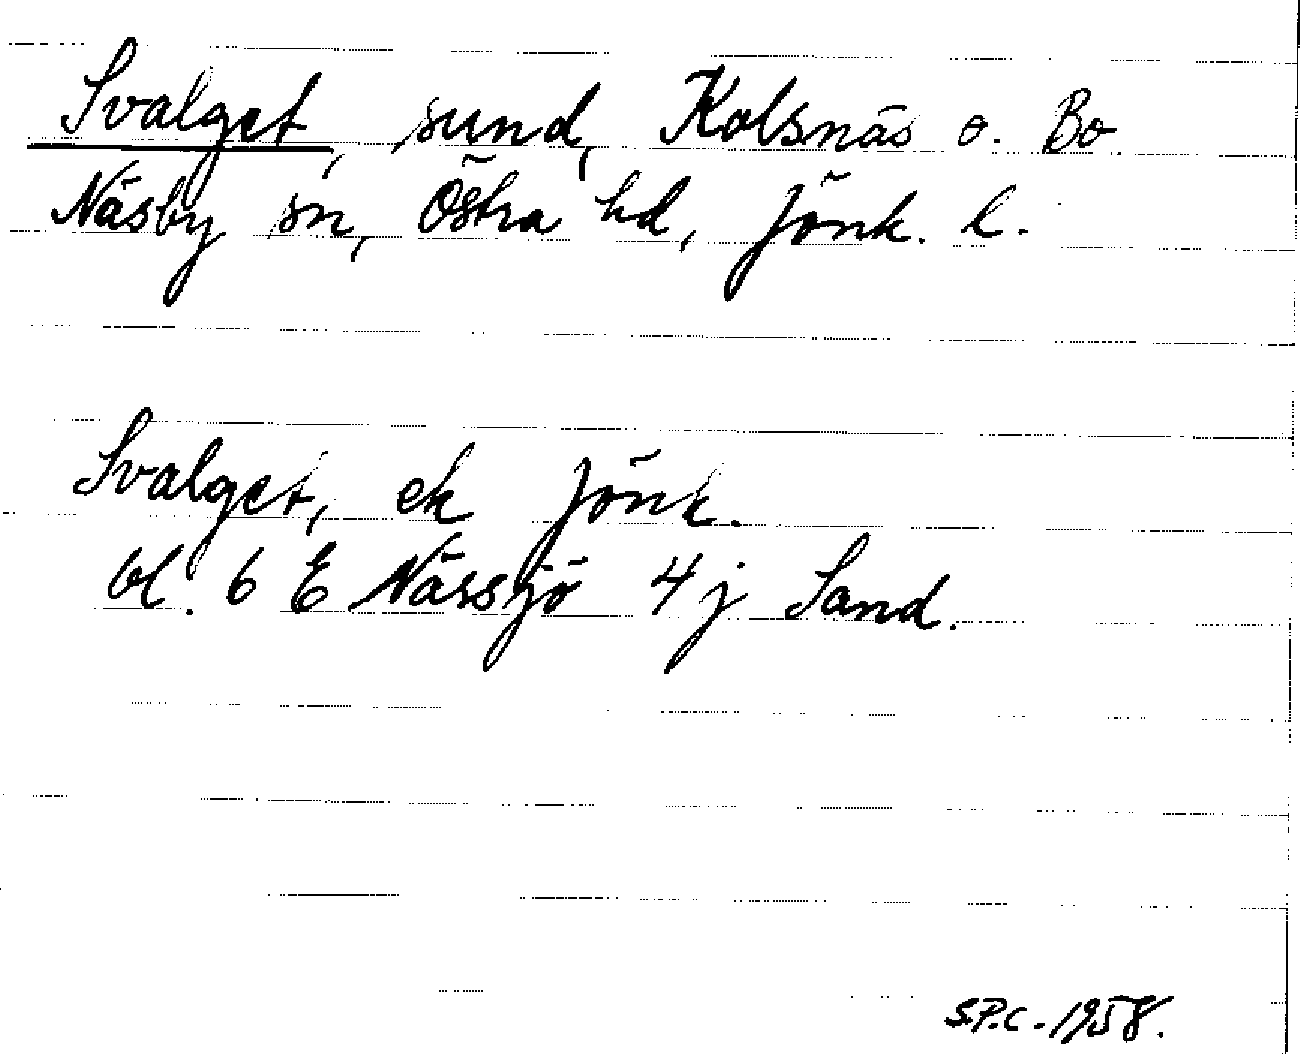 Svalget, sund, Kolsnäs o. Bo
Näsby sn, Östra hd, Jönk. l.
Svalget, ek Jönk.
bl. 6 E Nässjö 4 j Sand.
S.P.C. 1958.